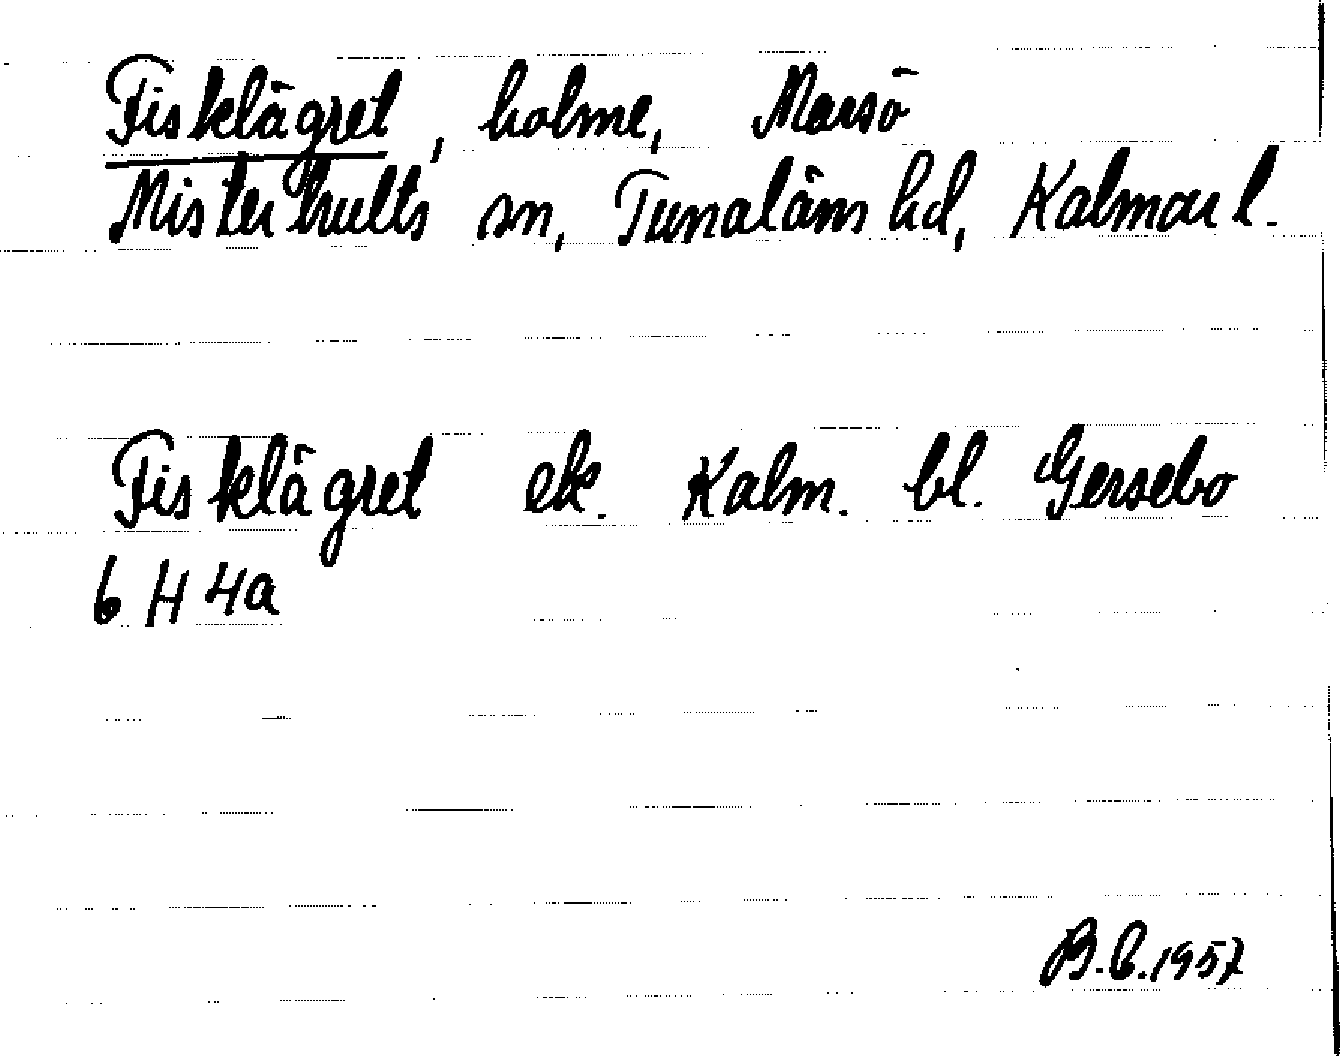 Fisklägret, holme, Marsö
Misterhults sn, Tunaläns hd, Kalmar l.
Fisklägret ek. Kalm. bl. Gersebo
6 H 4a
B.C.1957